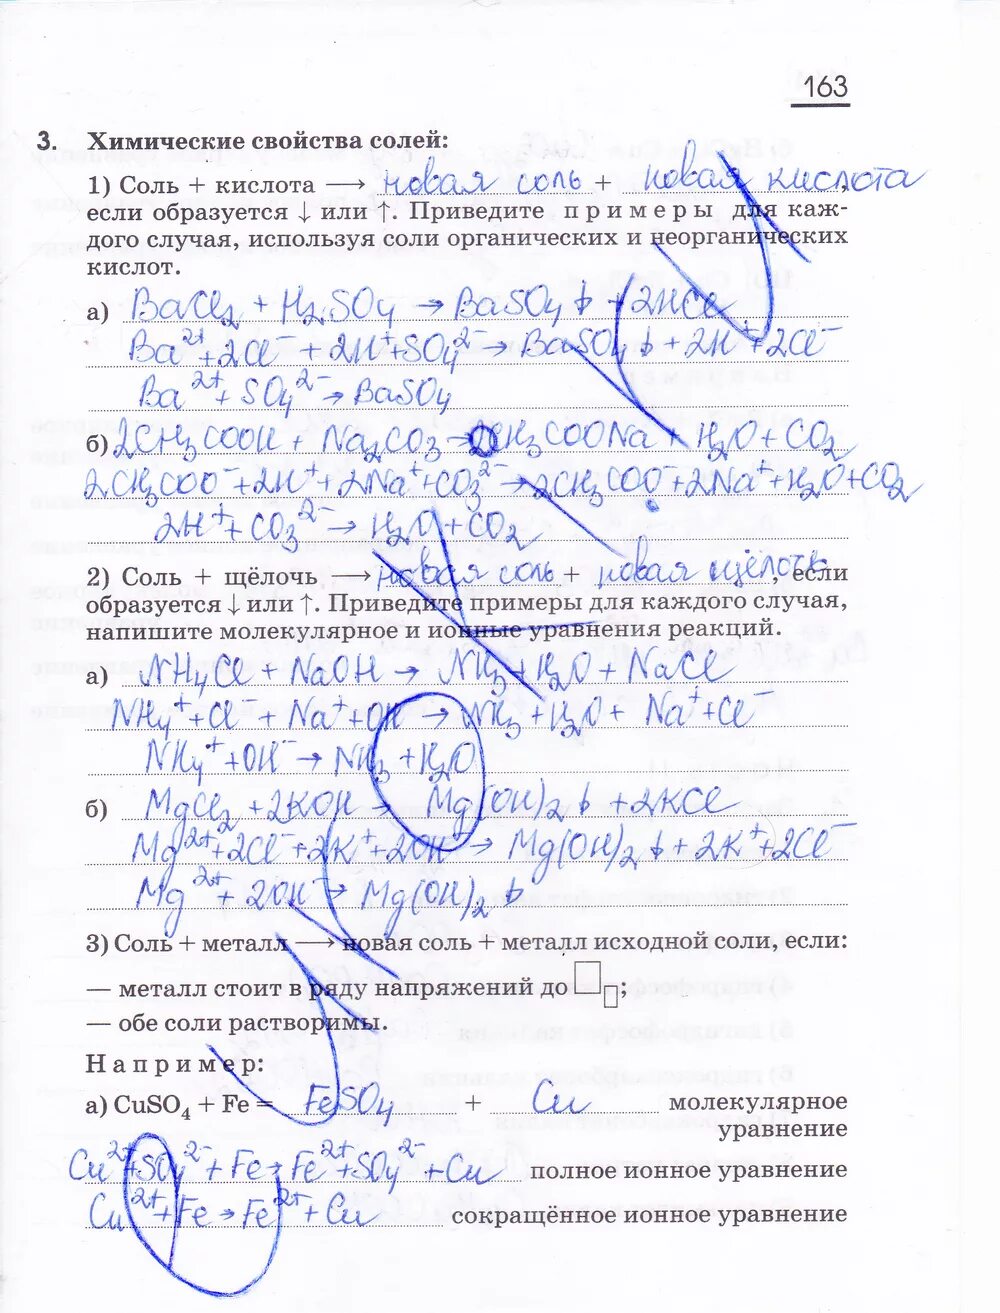 163
3. Химические свойства солей:
1) Соль + кислота ⟶ новая соль + новая кислота,
если образуется ↓ или ↑. Приведите примеры для каж-
дого случая, используя соли органических и неорганических
кислот.
а) BaCl₂ + H₂SO₄ → BaSO₄↓ + 2HCl
Ba²⁺ + 2Cl⁻ + 2H⁺ + SO₄²⁻ → BaSO₄↓ + 2H⁺ + 2Cl⁻
Ba²⁺ + SO₄²⁻ → BaSO₄
б) 2CH₃COOH + Na₂CO₃ → 2CH₃COONa + H₂O + CO₂
2CH₃COO⁻ + 2H⁺ + 2Na⁺ + CO₃²⁻ → 2CH₃COO⁻ + 2Na⁺ + H₂O + CO₂
2H⁺ + CO₃²⁻ → H₂O + CO₂
2) Соль + щёлочь ⟶ новая соль + новая щёлочь, если
образуется ↓ или ↑. Приведите примеры для каждого случая,
напишите молекулярное и ионные уравнения реакций.
а) NH₄Cl + NaOH → NH₃ + H₂O + NaCl
NH₄⁺ + Cl⁻ + Na⁺ + OH⁻ → NH₃ + H₂O + Na⁺ + Cl⁻
NH₄⁺ + OH⁻ → NH₃ + H₂O
б) MgCl₂ + 2KOH → Mg(OH)₂↓ + 2KCl
Mg²⁺ + 2Cl⁻ + 2K⁺ + 2OH⁻ → Mg(OH)₂↓ + 2K⁺ + 2Cl⁻
Mg²⁺ + 2OH⁻ → Mg(OH)₂↓
3) Соль + металл ⟶ новая соль + металл исходной соли, если:
— металл стоит в ряду напряжений до □□;
— обе соли растворимы.
Например:
а) CuSO₄ + Fe = FeSO₄ + Cu молекулярное
уравнение
Cu²⁺ + SO₄²⁻ + Fe → Fe²⁺ + SO₄²⁻ + Cu полное ионное уравнение
Cu²⁺ + Fe → Fe²⁺ + Cu сокращённое ионное уравнение